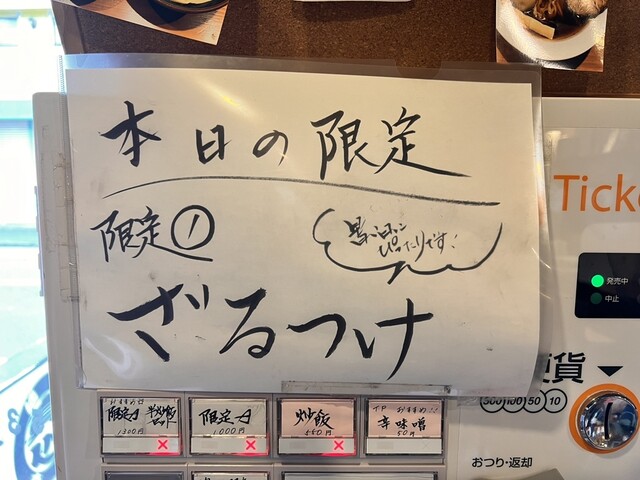 本日の限定
限定①
暑い日に
ぴったりです!
ざるつけ
Ticke
発売中
中止
硬貨
500 100 50 10
おつり・返却
おすすめ
限定A 半炒飯セット
1300円
限定A
1000円
炒飯
550円
TP おすすめ!!
辛味噌
50円